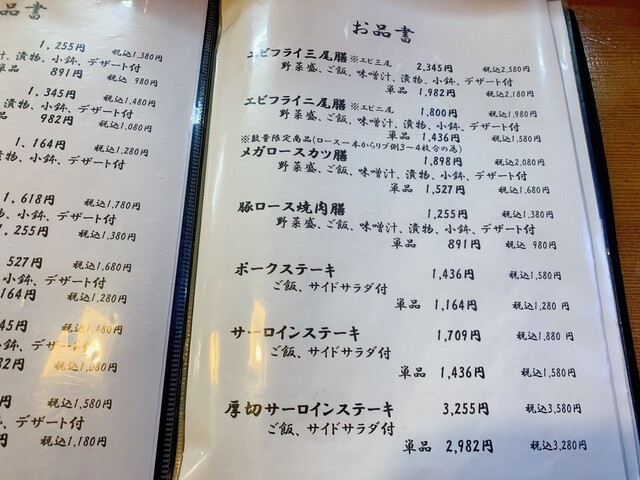 品書
1,255円 税込1,380円
汁、漬物、小鉢、デザート付
単品 891円 税込 980円
1,345円 税込1,480円
漬物、小鉢、デザート付
982円 税込1,080円
1,164円 税込1,280円
漬物、小鉢、デザート付
1,618円 税込1,780円
物、小鉢、デザート付
1,255円 税込1,380円
527円 税込1,680円
小鉢、デザート付
164円 税込1,280円
45円 税込1,480円
小鉢、デザート付
82円 税込1,080円
円 税込1,580円
、デザート付
円 税込1,180円
お品書
エビフライ三尾膳 ※エビ三尾 2,345円 税込2,580円
野菜盛、ご飯、味噌汁、漬物、小鉢、デザート付
単品 1,982円 税込2,180円
エビフライ二尾膳 ※エビ二尾 1,800円 税込1,980円
野菜盛、ご飯、味噌汁、漬物、小鉢、デザート付
単品 1,436円 税込1,580円
※数量限定商品(ロース一本からリブ側3~4枚分の為)
メガロースカツ膳 1,898円 税込2,080円
野菜盛、ご飯、味噌汁、漬物、小鉢、デザート付
単品 1,527円 税込1,680円
豚ロース焼肉膳 1,255円 税込1,380円
野菜盛、ご飯、味噌汁、漬物、小鉢、デザート付
単品 891円 税込 980円
ポークステーキ 1,436円 税込1,580円
ご飯、サイドサラダ付
単品 1,164円 税込1,280円
サーロインステーキ 1,709円 税込1,880円
ご飯、サイドサラダ付
単品 1,436円 税込1,580円
厚切サーロインステーキ 3,255円 税込3,580円
ご飯、サイドサラダ付
単品 2,982円 税込3,280円